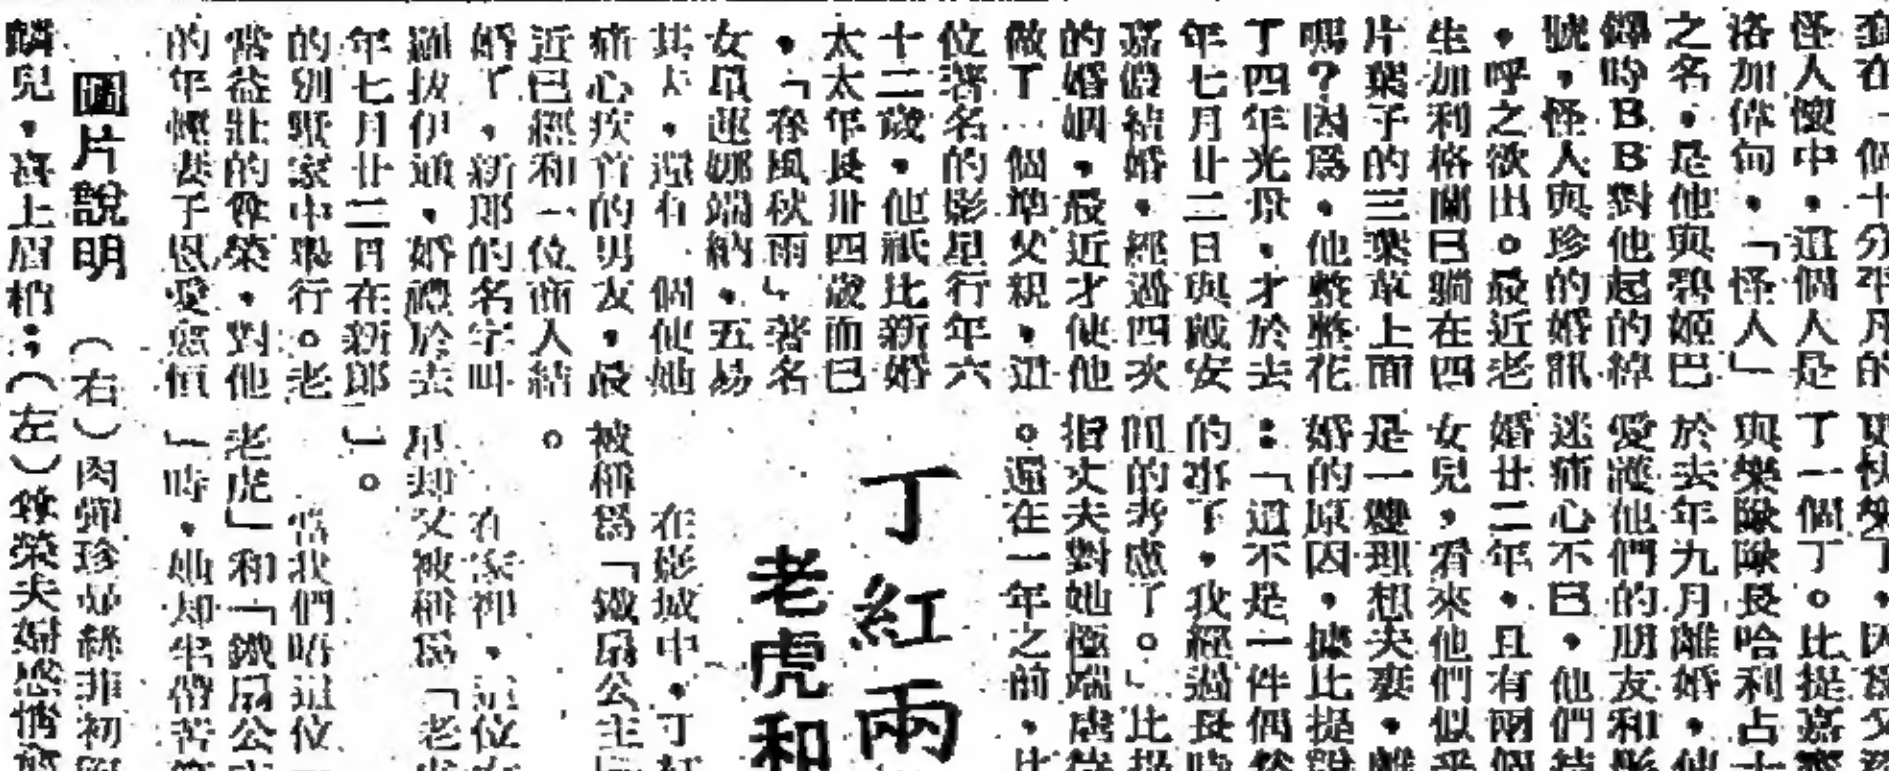 在一個十分平凡的
怪人懷中,這個人是
洛加偉甸,「怪人」
之名,是他與碧姬巴
鐸時BB對他起的綽
號,怪人與珍的婚訊
,呼之欲出。最近老
生加利格蘭已躺在四
片葉子的三葉草上面
嗎?因爲,他整整花
了四年光景,才於去
年七月廿二日與戴安
嘉儂結婚,經過四次
的婚姻,最近才使他
做了一個準父親,這
位著名的影星行年六
十二歲,他祇比新婚
太太年長卅四歲而已
,「春風秋雨」著名
女星蓮娜端納,五易
其夫,還有一個使她
痛心疾首的男友,最
近已經和一位商人結
婚了,新郎的名字叫
羅拔伊頓,婚禮於去
年七月廿二日在新郎
的別墅家中舉行。老
當益壯的尊榮,對他
的年輕妻子恩愛逾恒
更快樂了,因爲父
了一個丁。比提嘉
與樂隊隊長哈利占士
於去年九月離婚,使
愛護他們的朋友和影
迷痛心不已,他們結
婚廿二年,且有兩個
女兒,看來他們似乎
是一雙理想夫妻,離
婚的原因,據比提說
:「這不是一件偶然
的事了,我經過長時
間的考慮了。」比提
指丈夫對她極端虐待
。還在一年之前,比
丁紅兩
老虎和
在影城中,丁紅
被稱爲「鐵扇公主
。
在家裡,這位
星却又被稱爲「老虎
」。
當我們晤這位
老虎」和「鐵扇公主
」時,她却牢帶苦
圖片說明
(右)肉彈珍茜絲菲初
麟兒,喜上眉梢;(左)尊榮夫婦